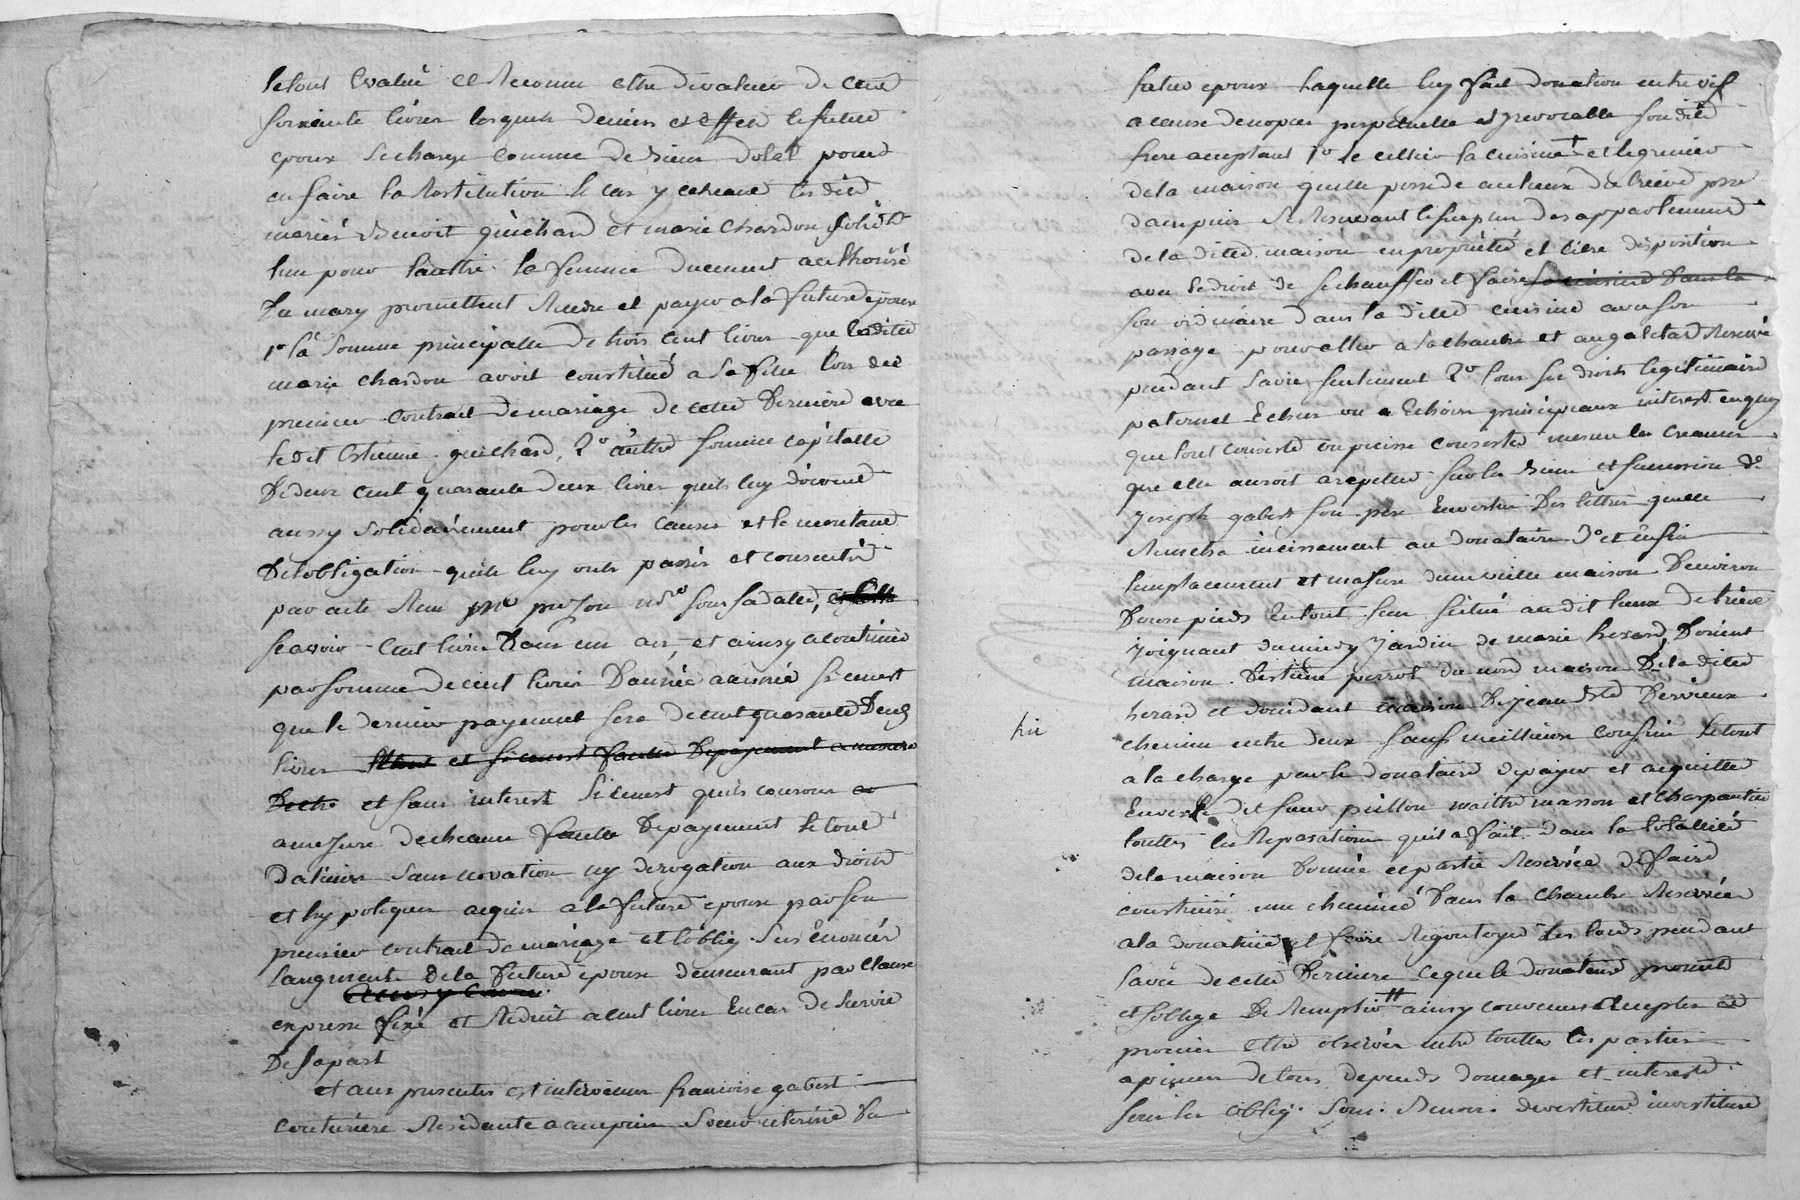 le tout Evalué et Reconnu etre de valeur de cent
soixante livres lesquels deniers et effets le futur
epoux se charge comme de bien dotal pour
en faire la Restitution le cas y echeant les dits
mariés Benoit guichard et marie chardon solidt
lun pour lautre la femme duement authorisé
Du mary promettent Rendre et payer a la future epouse
1º la somme principalle de trois cent livres que laditte
marie chardon avoit constitué a sa fille lors du
premier contrait de mariage de cette Derniere avec
ledit Estienne guichard, 2º autre somme capitalle
De deux cent quarante deux livres quils luy doivent
aussy solidairement pour les causes et le montant
De lobligation quils luy ont passés et consentie
par acte Reçu sous sa date,
scavoir cent livres Dans un an, et ainsy a continuer
par somme de cent livres D'année a année si cenest
que le dernier payement sera de cent quarante Deux
livres et si cenest faulte De payement a mesure
et sans interest si cenest quils courons
a mesure decheance faulte De payement le tout
sans novation ny derogation aux droits
et hypoteques acquis a la future epouse par son
premier contrait de mariage et l'oblig. sus Enoncés
laugment de la future epouse demeurant par clause
expresse fixé et Reduit a cent livres En cas de survie
De sa part
et aux presentes est intervenue francoise gabert
couturiere Residante a ampuis soeur uterine du
futur epoux Laquelle luy fait donation entre vif
a cause de nopces perpetuelle et irrevocable son dit
frere acceptant 1º le cellier la cuisine + et le grenier
de la maison quelle possede au lieux de trieve psse
dampuis se Reservant le surplus des appartements
de la ditte maison en propriété et libre disposition
avec le droit de se chauffer et faire sa cuisine Dans la
son ordinaire dans la ditte cuisine avec son
passage pour aller a la chambre et au galetas Reservé
pendant sa vie seulement 2º tous ses droits legitimaires
paternel Echus ou a Echoir principaux interest en quoy
que tout consiste ou puisse consister mesme les creances
que elle auroit a repeter sur les biens et succession de
joseph gabert son pere En vertu Des lettres quelle
Remettra incessament au donataire 3º et enfin
lemplacement et masure dune vielle maison Denviron
Douze pieds En tout sens situé au dit lieux de trieve
joignant du midy jardin de marie herard, D'orient
maison D'estiene perrot du nord maison De la ditte
herard et doccidant maison De jean Bte Dervieux
chemin entre deux sauf meillieur confin Le tout
a la charge par le donataire de payer et acquitter
Envers le dit sieur pitton maitre masson et charpantier
touttes les Reparations quil a fait dans la totallité
de la maison Donnée et partie Reservée de faire
construire une cheminé Dans la chambre Reservée
a la donatrice et faire Regoutoyer les toits pendant
sa vie de cette Derniere ce que le donataire promet
et soblige De Remplir # ainsy convenu accepter et
promis etre observés entre touttes les parties
a peines de tous depends domages et interests
sous les oblig. soum. Renon. devestiture investiture